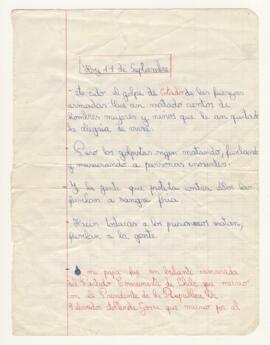 Hoy 11 de Septiembre
- A sido el golpe de Estado de las fuerzas
armadas Que an matado cientos de
hombres mujeres y niños que le an quitado
la alegria de vivir.
- Pero los golpistas sigen matando, fucilando
y masacrando a personas inosentes.
- Y ha gente que protesta contra ellos las
fucilan a sangre fria
- Hacen torturas a los pricioneros matan,
fucilan a la gente.
- mi papa fue un militante comunista
del Partido Comunista de Chile que murio
con el Presidente de la Republica de
Salvador Allende Gosse que murio por el